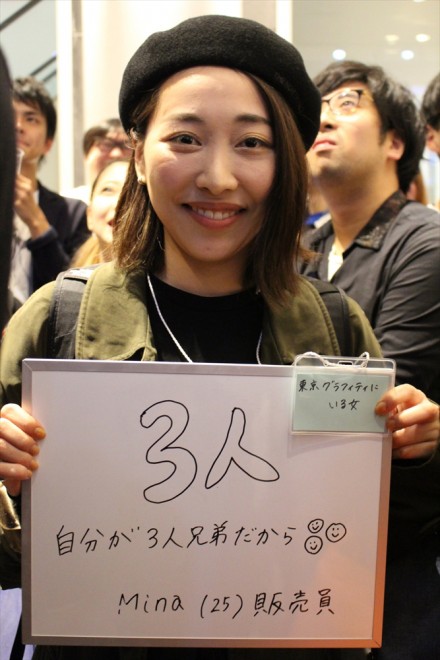 東京グラフィティに
いる女
3人
自分が3人兄弟だから
Mina (25) 販売員